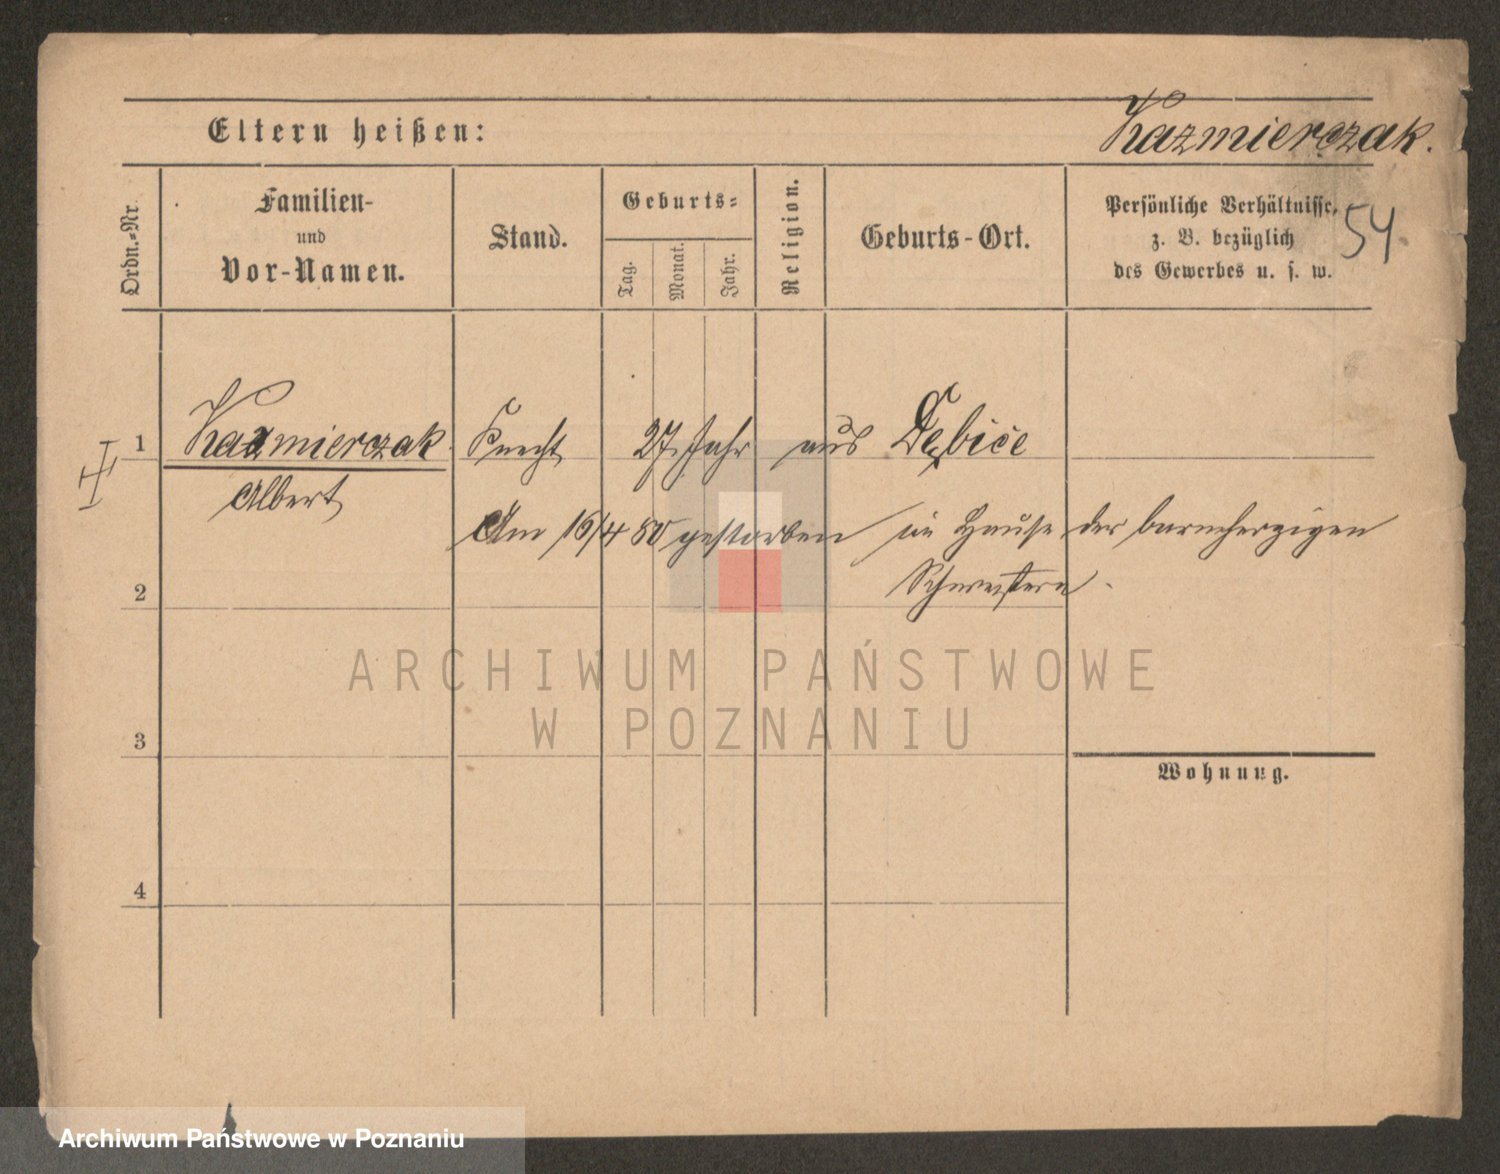 Eltern heißen:
Kazmierczak.
Ordn.-Nr.
Familien-
und
Vor-Namen.
Stand.
Geburts-
Tag.
Monat.
Jahr.
Religion.
Geburts-Ort.
Persönliche Verhältnisse,
z. B. bezüglich
des Gewerbes u. s. w.
54
1
Kazmierczak
Knecht
27 Jahr
aus
Dębice
Albert
Am 16/4 80 gestorben im Hause der barmherzigen
Schwestern.
2
ARCHIWUM PAŃSTWOWE
W POZNANIU
3
Wohnung.
4
Archiwum Państwowe w Poznaniu